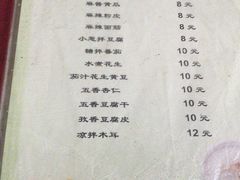 麻酱黄瓜 8 元
麻辣粉皮 8 元
麻辣面筋 8 元
小葱拌豆腐 8 元
糖拌番茄 10 元
水煮花生 10 元
茄汁花生黄豆 10 元
五香杏仁 10 元
五香豆腐干 10 元
孜香豆腐皮 10 元
凉拌木耳 12 元